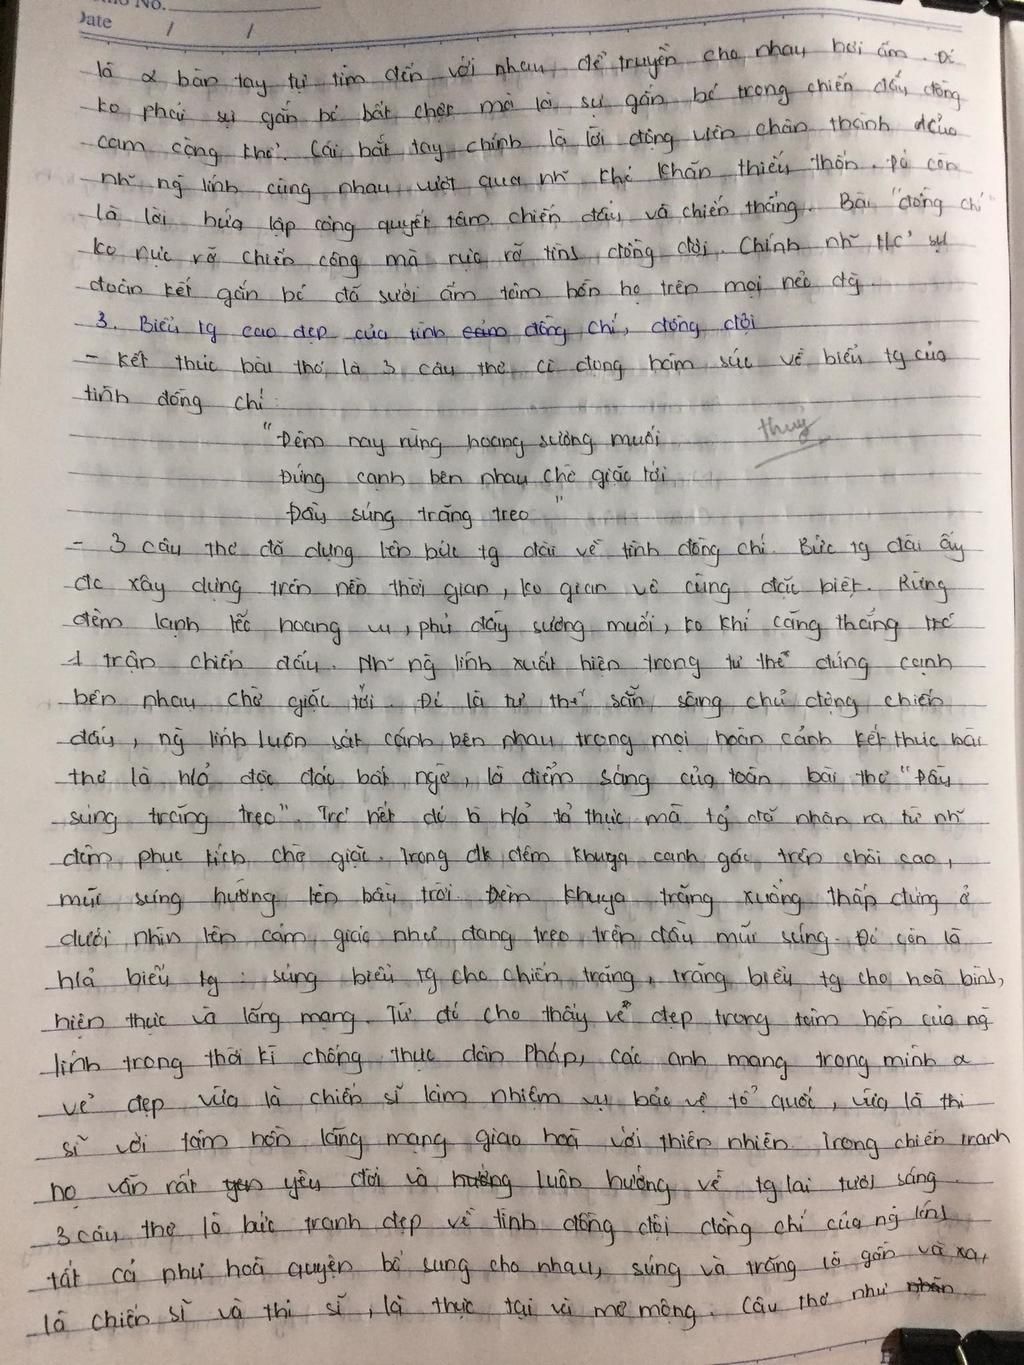 No.
Date / /
là 2 bàn tay tự tìm đến với nhau, để truyền cho nhau hơi ấm. Đó
ko phải sự gắn bó bất chợt mà là sự gắn bó trong chiến đấu đồng
cam cộng khổ. Cái bắt tay chính là lời động viên chân thành của
nh~ ng lính cùng nhau vượt qua nh~ khó khăn thiếu thốn. Đó còn
là lời hứa lập công quyết tâm chiến đấu và chiến thắng. Bài "đồng chí"
ko rực rỡ chiến công mà rực rỡ tình đồng đội. Chính nh~ sự
đoàn kết gắn bó đã sưởi ấm tâm hồn họ trên mọi nẻo đg.
3. Biểu tg cao đẹp của tình đồng chí, đồng đội
- Kết thúc bài thơ là 3 câu thơ cô đọng hàm súc về biểu tg của
tình đồng chí:
"Đêm nay rừng hoang sương muối
Đứng cạnh bên nhau chờ giặc tới
Đầu súng trăng treo"
- 3 câu thơ đã dựng lên bức tg đài về tình đồng chí. Bức tg đài ấy
đc xây dựng trên nền thời gian, ko gian vô cùng đặc biệt. Rừng
đêm lạnh lẽo hoang vu, phủ đầy sương muối, ko khí căng thẳng trc
1 trận chiến đấu. Nh~ ng lính xuất hiện trong tư thế đứng cạnh
bên nhau chờ giặc tới. Đó là tư thế sẵn sàng chủ động chiến
đấu, ng lính luôn sát cánh bên nhau trong mọi hoàn cảnh kết thúc bài
thơ là h/ả độc đáo bất ngờ, là điểm sáng của toàn bài thơ "Đầu
súng trăng treo". Trc hết đó là h/ả tả thực mà tg đã nhận ra từ nh~
đêm phục kích chờ giặc. Trong đk đêm khuya canh gác trên chòi cao,
mũi súng hướng lên bầu trời. Đêm khuya trăng xuống thấp đứng ở
dưới nhìn lên cảm giác như đang treo trên đầu mũi súng. Đó còn là
h/ả biểu tg: súng biểu tg cho chiến tranh, trăng biểu tg cho hoà bình,
hiện thực và lãng mạng. Từ đó cho thấy vẻ đẹp trong tâm hồn của ng
lính trong thời kì chống thực dân Pháp, các anh mang trong mình 2
vẻ đẹp vừa là chiến sĩ làm nhiệm vụ bảo vệ tổ quốc, vừa là thi
sĩ với tâm hồn lãng mạng giao hoà với thiên nhiên. Trong chiến tranh
họ vẫn rất yêu đời và luôn hướng về tg lai tươi sáng.
3 câu thơ là bức tranh đẹp về tình đồng đội đồng chí của ng lính
tất cả như hoà quyện bổ sung cho nhau, súng và trăng là gần và xa,
là chiến sĩ và thi sĩ, là thực tại và mơ mộng. Câu thơ như